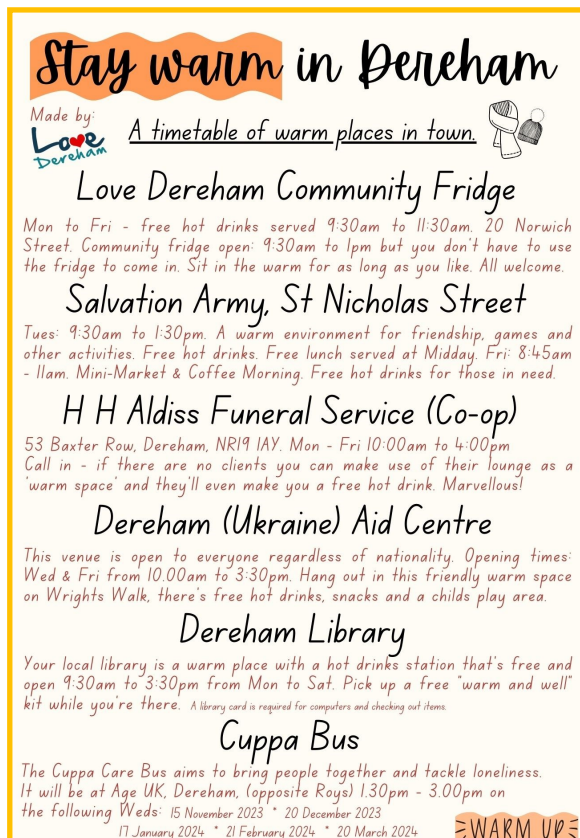 Stay warm in Dereham
Made by:
Love
Dereham
A timetable of warm places in town.
Love Dereham Community Fridge
Mon to Fri - free hot drinks served 9:30am to 11:30am. 20 Norwich
Street. Community fridge open: 9:30am to 1pm but you don't have to use
the fridge to come in. Sit in the warm for as long as you like. All welcome.
Salvation Army, St Nicholas Street
Tues: 9:30am to 1:30pm. A warm environment for friendship, games and
other activities. Free hot drinks. Free lunch served at Midday. Fri: 8:45am
- 11am. Mini-Market & Coffee Morning. Free hot drinks for those in need.
H H Aldiss Funeral Service (Co-op)
53 Baxter Row, Dereham, NR19 1AY. Mon - Fri 10:00am to 4:00pm
Call in - if there are no clients you can make use of their lounge as a
'warm space' and they'll even make you a free hot drink. Marvellous!
Dereham (Ukraine) Aid Centre
This venue is open to everyone regardless of nationality. Opening times:
Wed & Fri from 10.00am to 3:30pm. Hang out in this friendly warm space
on Wrights Walk, there's free hot drinks, snacks and a childs play area.
Dereham Library
Your local library is a warm place with a hot drinks station that's free and
open 9:30am to 3:30pm from Mon to Sat. Pick up a free "warm and well"
kit while you're there. A library card is required for computers and checking out items.
Cuppa Bus
The Cuppa Care Bus aims to bring people together and tackle loneliness.
It will be at Age UK, Dereham, (opposite Roys) 1.30pm - 3.00pm on
the following Weds: 15 November 2023 * 20 December 2023
17 January 2024 * 21 February 2024 * 20 March 2024
WARM UP